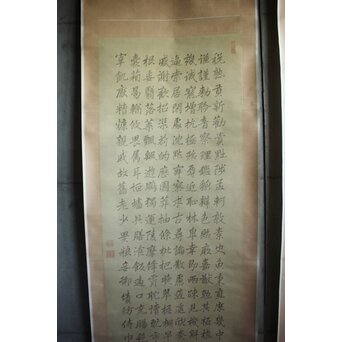 稅熟貢新勸賞黜陟孟軻敦素史魚秉直庶幾中
謙謹勅聆音察理鑑貌辨色貽厥嘉猷勉其祗植
譏誡寵增抗極殆辱近恥林皋幸即兩疏見機解
逼索居閑處沈默寂寥求古尋論散慮逍遙欣奏
慼謝歡招渠荷的歷園莽抽條枇杷晚翠梧桐早
根委翳落葉飄颻遊鵾獨運淩摩絳霄耽讀翫市
囊箱易輶攸畏屬耳垣牆具膳飧飯適口充腸
宰飢厭糟糠親戚故舊老少異糧妾御績紡侍巾